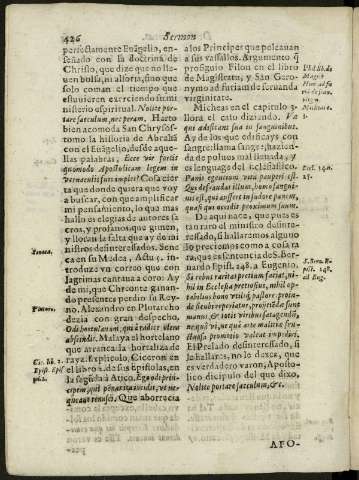 426 Sermon
perfectamente Euãgelio, en-
señado con la doctrina de
Christo, que dize que no lle-
uen bolsa, ni alforja, sino que
solo coman el tiempo que
estuuieren exerciendo su mi-
nisterio espiritual. Nolite por-
tare sacculum, nec peram. Harto
bien acomoda San Chrysosto-
mo la historia de Abrahã
con el Euãgelio, desde aque-
llas palabras,
quomodo Apostolicam legem in
Cosa cier-
ta que donde quiera que voy
a buscar, con que amplificar
mi pensamiento, lo que mas
hallo es elegias de autores sa-
cros, y profanos que gimen,
y lloran la falta que ay de mi
nistros desinteressados. Sene-
ca en su Medea, Actu 5. in-
troduze vn correo que con
lagrimas cantaua a coro. Ay
de mi, que Chreonte ganan-
do presentes perdio su Rey-
no. Alexandro en Plutarcho
dezia con gran despecho.
Odi hortulanum, qui à radice olera
abscindit. Malaya el hortelano
que arranca la hortaliza de
rayz. Explicolo, Ciceron en
el libro 2. de sus epistolas, en
la segũda à Atico. Ego odi prin-
cipem,
Que aborrecia
Seneca.
Plutarc.
Cic. lib. 2.
Epist. Epis
alos Principes que peleauan
a sus vassallos. Argumento q̃
prosiguio Filon en el libro
de Magistratu, y San Gero-
nymo ad furiam de seruanda
virginitate.
Micheas en el capitulo 3.
llora el caso dizendo. Væ
qui ædificatis Sion in sanguinibus.
Ay de los que edificays con
sangre: llama sangre, hazien-
da de pobres mal lleuada, y
es lenguage del Eclesiastico.
Panis egentium vita pauperis est.
Qui defraudat illum, homo sangui-
nis est, qui aufert in sudore panem,
quasi qui occidit proximum suum.
De aqui nace, que pues es
tan raro el ministro desinte-
ressado, si hallaremos alguno
lo preciemos como a cosa ra-
ra, que es sentencia de S. Ber-
nardo Epist. 248. a Eugenio.
Si rebus raritas pretium facit, ni-
hil in Ecclesia pretiosius, nihil op-
tabilius bono vtilique pastore:
El Prelado desinteressado, si
le hallares, no le dexes, que
es verdadero varon, Aposto-
lico, discipulo del que dixo,
Nolite portare sacculum, &c.
Phil. lib. de
Magist.
Micheæ.
S. Bern. E-
pist. 248.
ad Eug.
APO-